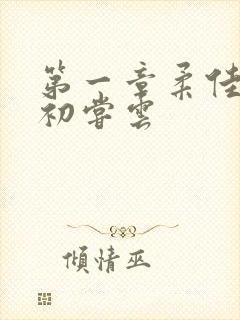 第一章柔佳
初尝云
倾情巫